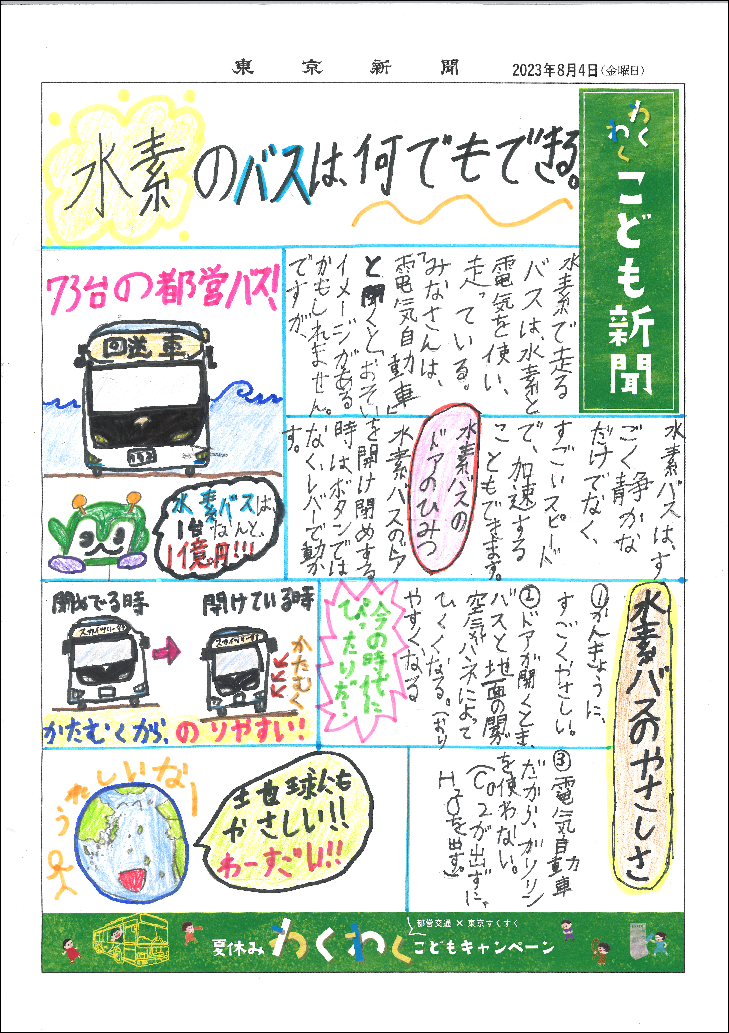 東京新聞
2023年8月4日(金曜日)
わくわく
こども新聞
水素のバスは、何でもできる。
水素で走る
バスは、水素と
電気を使い、
走っている。
「みなさんは、
電気自動車」
と聞くと「おそい」
イメージがある
かもしれません。
ですが、
73台の都営バス!
回送車
水素バスは、
1台なんと、
1億円!!!
水素バスは、す
ごく静かな
だけでなく、
すごいスピード
で、加速する
こともできます。
水素バスの
ドアのひみつ
水素バスのドア
を開け閉めする
時はボタンでは
なく、レバーで動か
す。
水素バスのやさしさ
①かんきょうに、
すごくやさしい。
②ドアが開くとき、
バスと地面の間が
空気バネによって
ひくくなる。(おり
やすくなる
今の時代に
ぴったりだ!
閉めでる時
開けている時
スカイツリー
スカイツリー
かたむく
かたむくから、のりやすい!
③電気自動車
だから、ガソリン
を使わない。
(CO2が出ずに、
H2Oを出す。)
うれしいなー
地球にも
やさしい!!
わーすごい!!
都営交通×東京すくすく
夏休みわくわくこどもキャンペーン